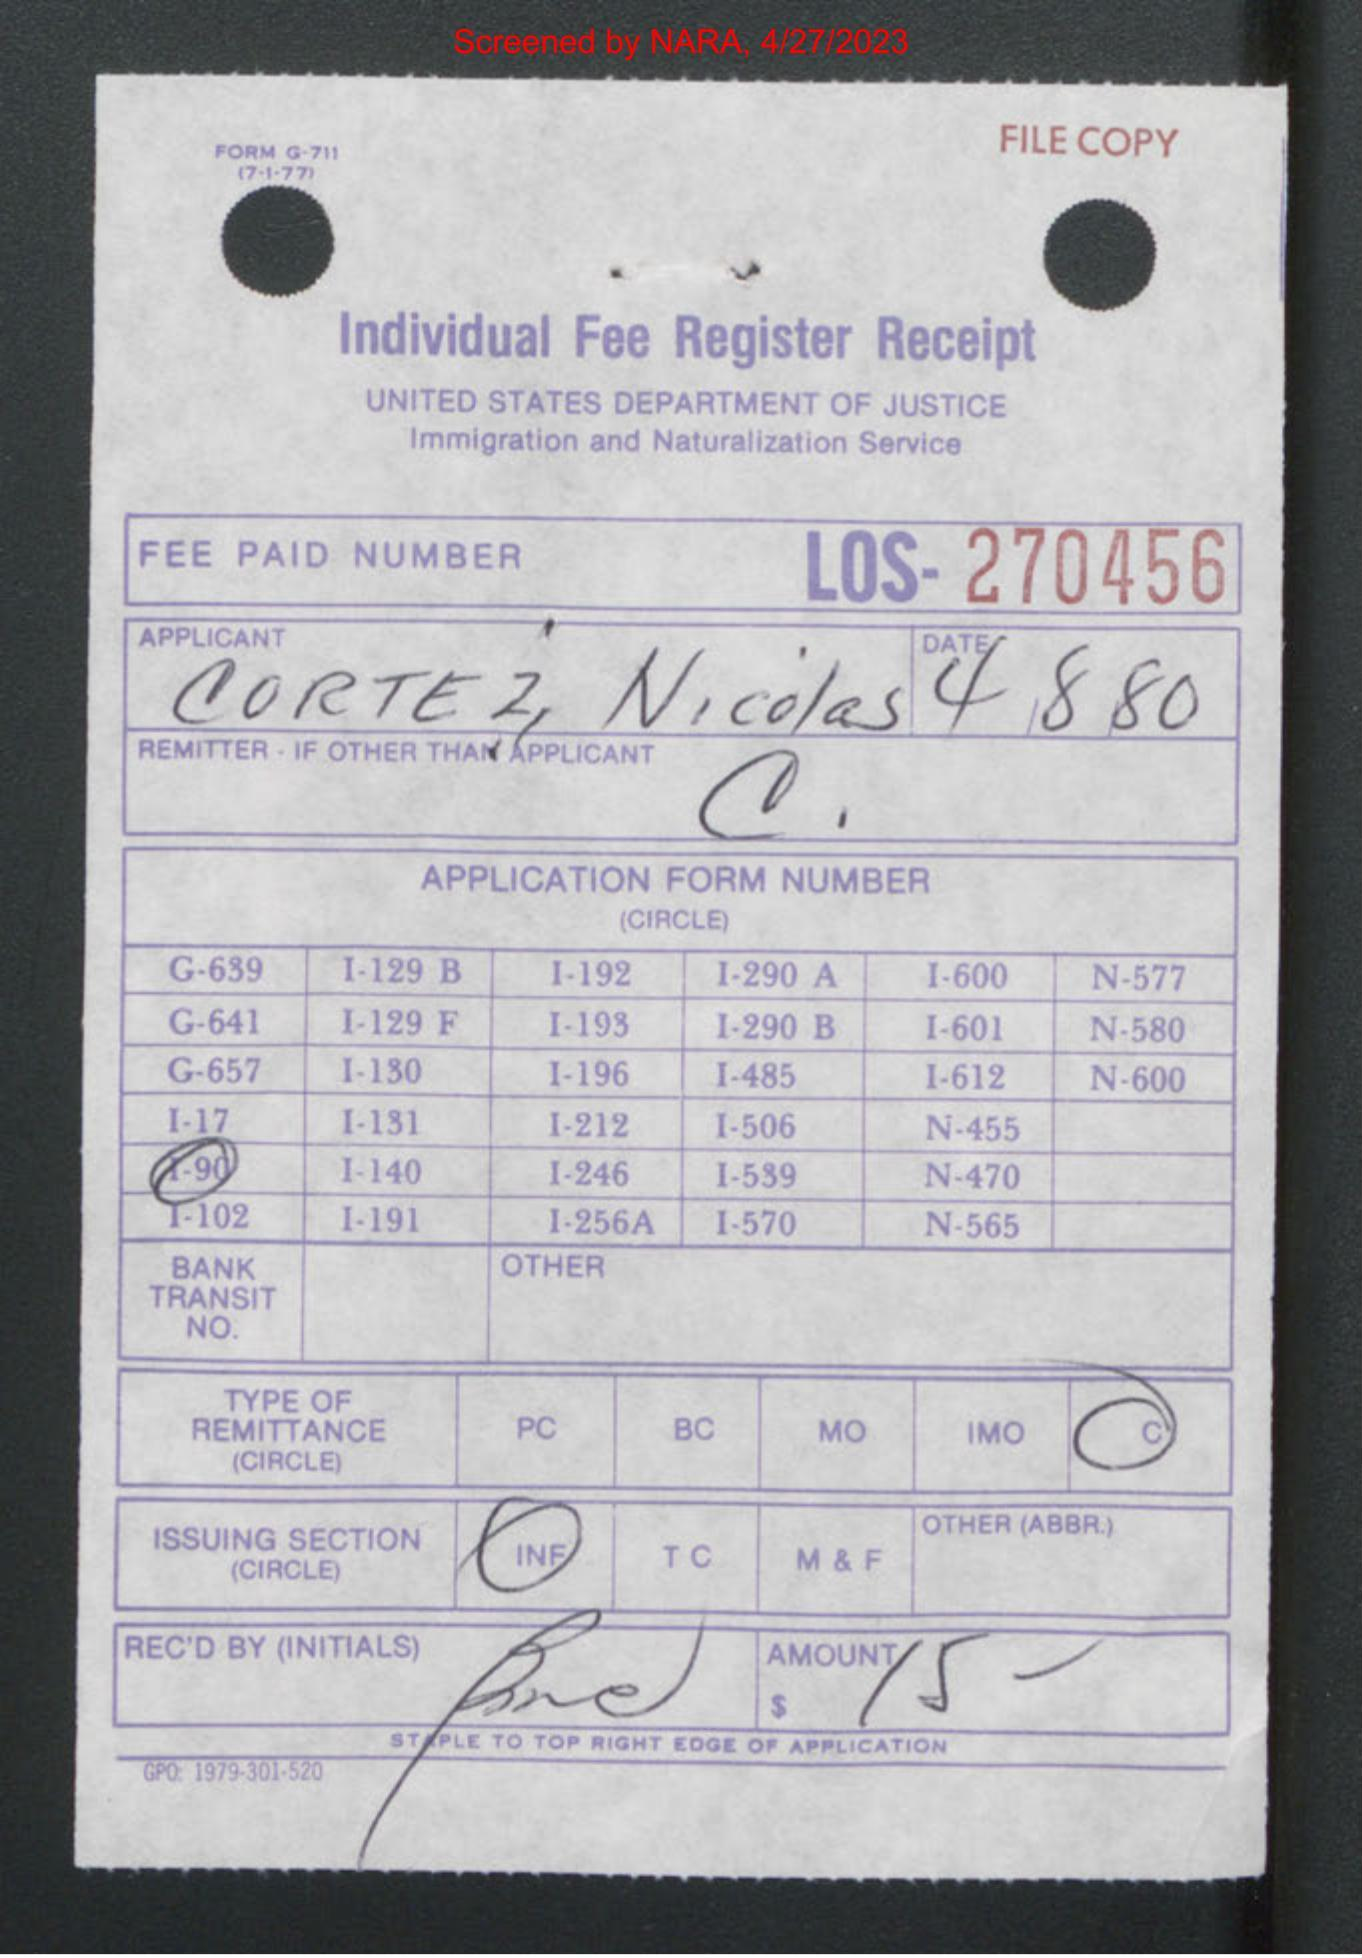 Screened by NARA, 4/27/2023
FORM G-711
(7-1-77)
FILE COPY
Individual Fee Register Receipt
UNITED STATES DEPARTMENT OF JUSTICE
Immigration and Naturalization Service
FEE PAID NUMBER LOS- 270456
APPLICANT DATE
CORTEZ, Nicolas 4 8 80
REMITTER - IF OTHER THAN APPLICANT
C.
APPLICATION FORM NUMBER
(CIRCLE)
G-639 I-129 B I-192 I-290 A I-600 N-577
G-641 I-129 F I-193 I-290 B I-601 N-580
G-657 I-130 I-196 I-485 I-612 N-600
I-17 I-131 I-212 I-506 N-455
I-90 I-140 I-246 I-539 N-470
I-102 I-191 I-256A I-570 N-565
BANK
TRANSIT
NO.
OTHER
TYPE OF
REMITTANCE
(CIRCLE)
PC BC MO IMO C
ISSUING SECTION
(CIRCLE)
INF T C M & F
OTHER (ABBR.)
REC'D BY (INITIALS)
AMOUNT
$ 15 -
STAPLE TO TOP RIGHT EDGE OF APPLICATION
GPO: 1979-301-520